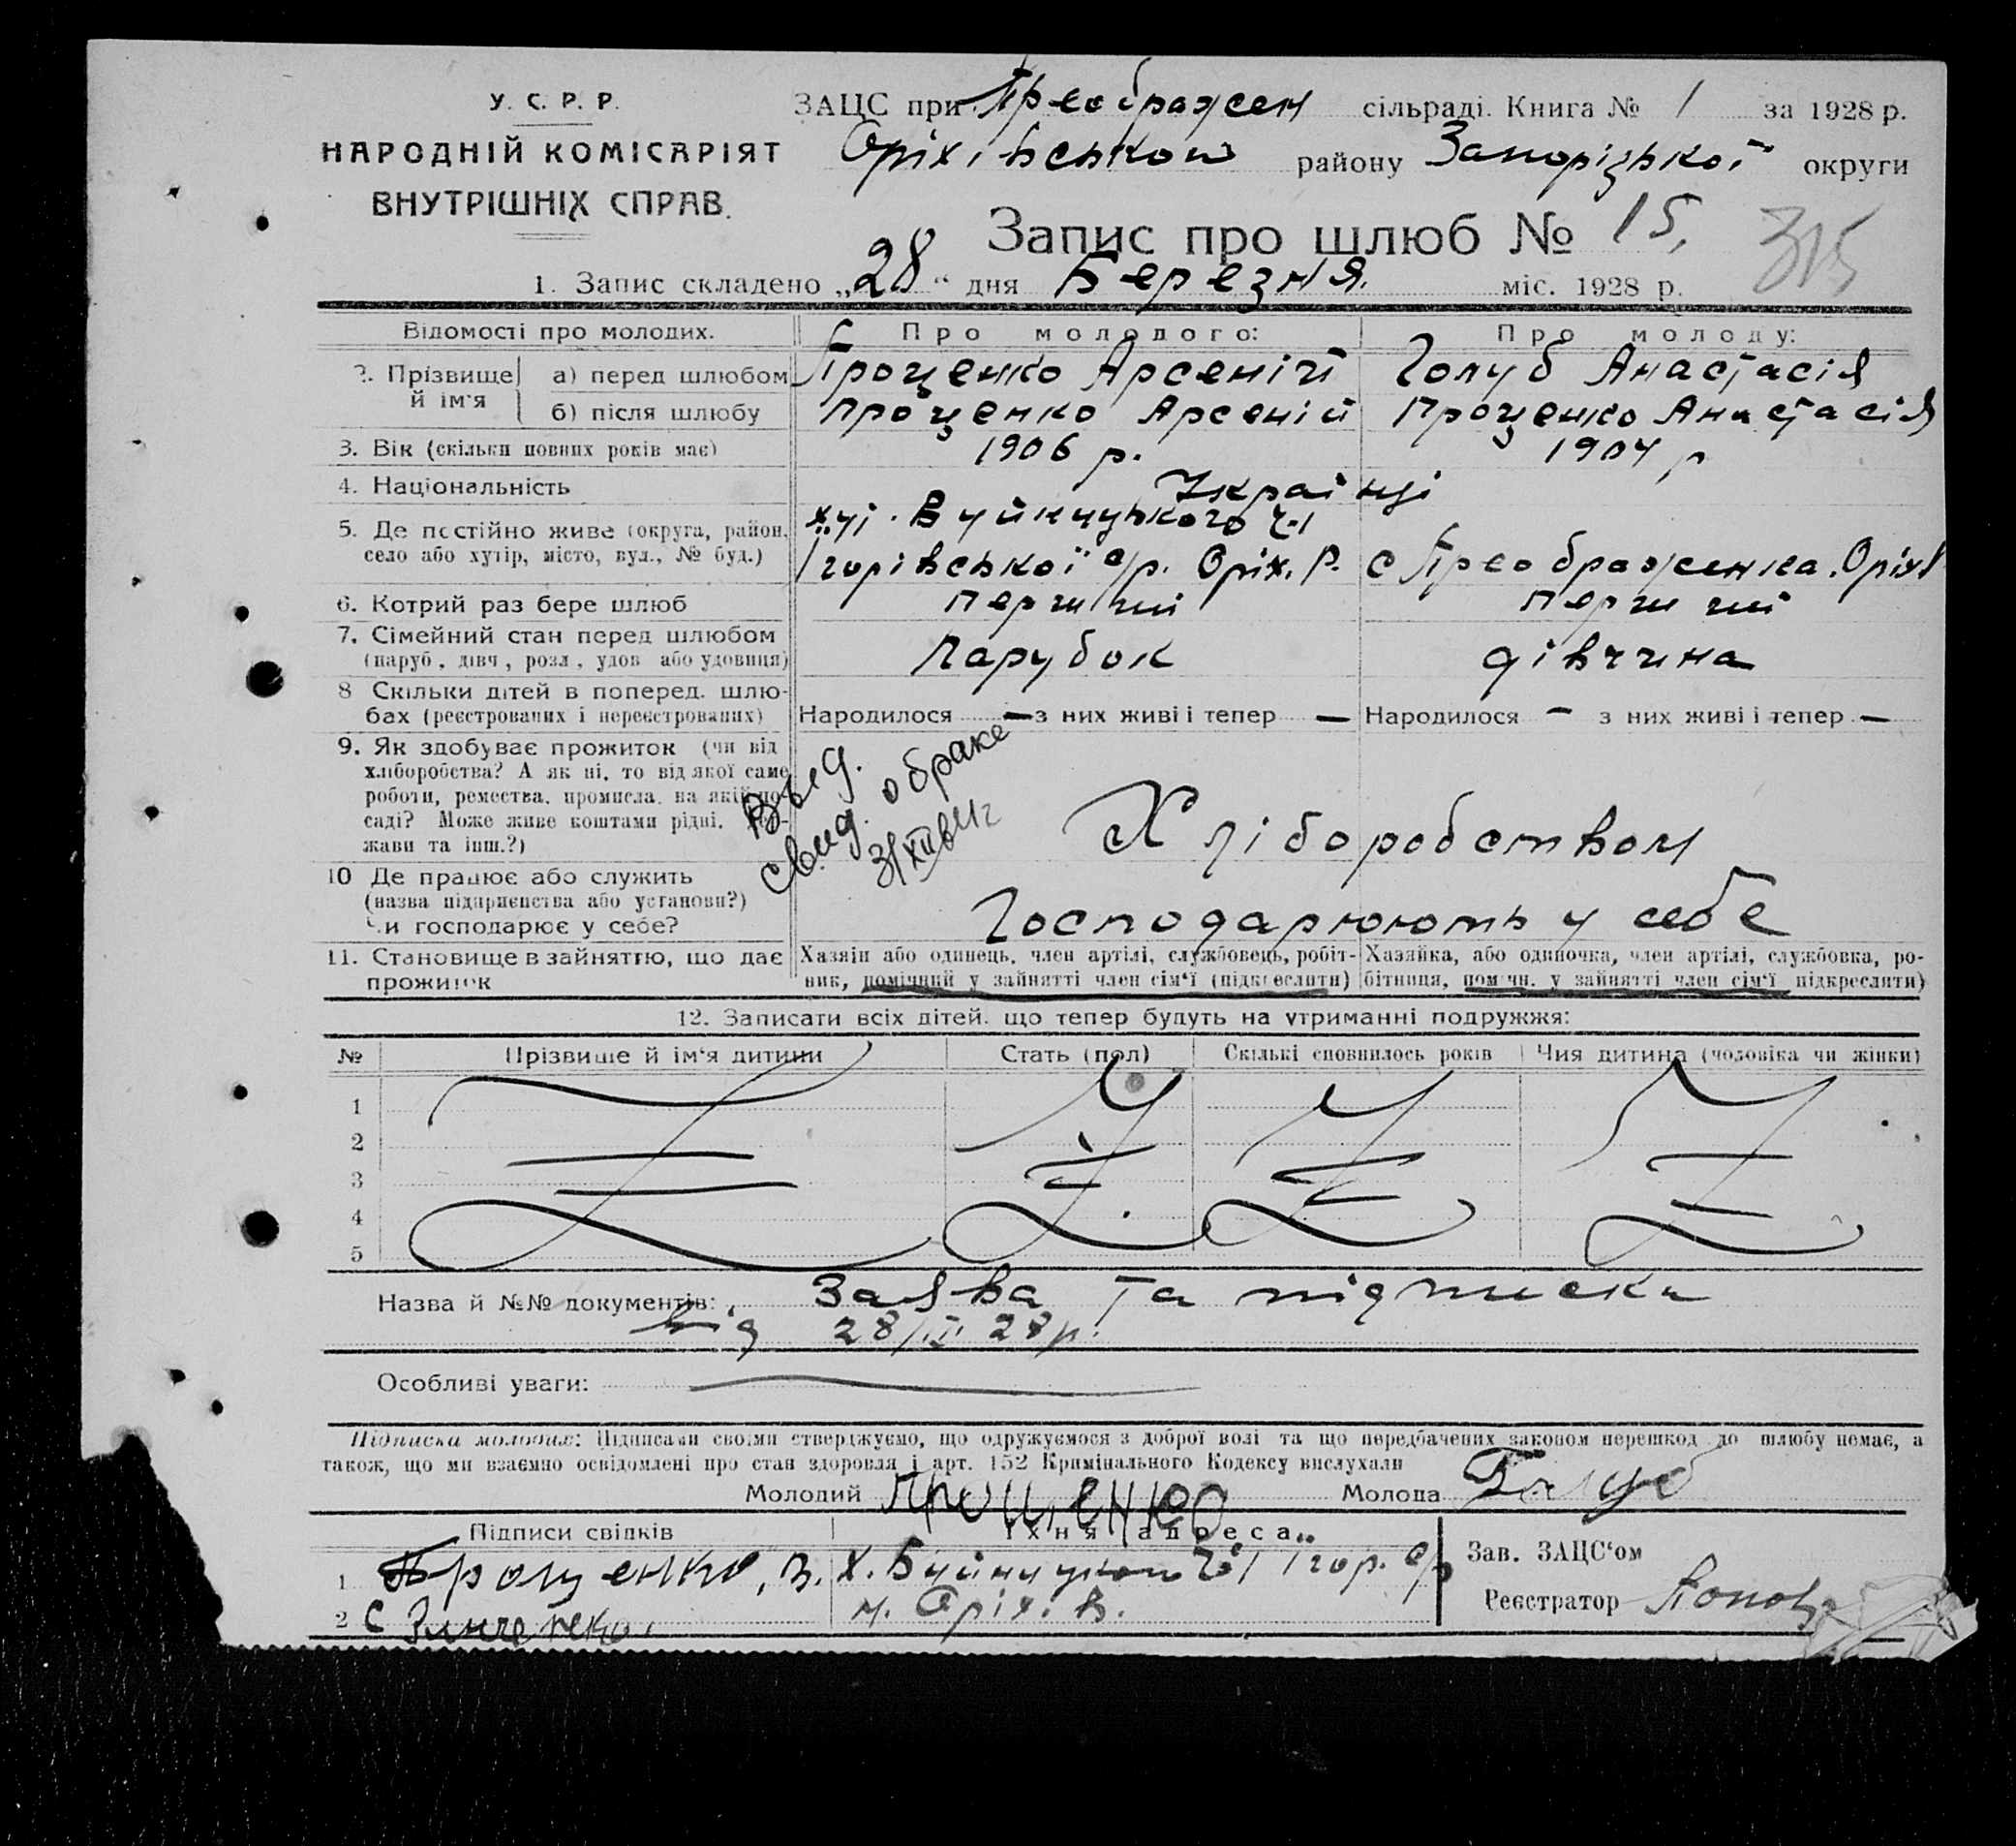 У. С. Р. Р.
НАРОДНІЙ КОМІСАРІЯТ
ВНУТРІШНІХ СПРАВ.
ЗАЦС при Преображен сільраді. Книга № 1 за 1928 р.
Оріхівського району Запорізької округи
Запис про шлюб № 15.
315
1. Запис складено „28“ дня Березня. міс. 1928 р.
Відомості про молодих. Про молодого: Про молоду:
2. Прізвище й ім'я а) перед шлюбом Проценко Арсеній Голуб Анастасія
б) після шлюбу Проценко Арсеній Проценко Анастасія
3. Вік (скільки повних років має) 1906 р. 1904 р
4. Національність Українці
5. Де постійно живе (округа, район, село або хутір, місто, вул., № буд.)
хут. ч. 1
Ігорівської с/р. Оріх. р. с Преображенка. Оріх
6. Котрий раз бере шлюб перший перший
7. Сімейний стан перед шлюбом Парубок дівчина
(паруб., дівч., розл., удов. або удовиця)
8 Скільки дітей в поперед. шлю-
бах (реєстрованих і нереєстрованих) Народилося — з них живі і тепер — Народилося — з них живі і тепер —
9. Як здобуває прожиток (чи від
хліборобства? А як ні, то від якої саме
роботи, ремества, промисла, на якій по-
саді? Може живе коштами рідні, дер-
жави та інш.?)
Хліборобством
Выд.
свид. о браке
31/XII в 41 г
10 Де працює або служить
(назва підприємства або установи?)
Чи господарює у себе?
Господарюють у себе
11. Становище в зайняттю, що дає
прожиток
Хазяїн або одинець, член артілі, службовець, робіт-
ник, помічний у зайнятті член сім'ї (підкреслити)
Хазяйка, або одиночка, член артілі, службовка, ро-
бітниця, помічн. у зайнятті член сім'ї підкреслити)
12. Записати всіх дітей, що тепер будуть на утриманні подружжя:
№ Прізвище й ім'я дитини Стать (пол) Скількі сповнилось років Чия дитина (чоловіка чи жінки)
1
2
3
4
5
Назва й №№ документів: Заява та підписка
від 28/ 28 р.
Особливі уваги:
Підписка молодих: Підписами своїми стверджуємо, що одружуємося з доброї волі та що передбачених законом перешкод до шлюбу немає, а
також, що ми взаємно освідомлені про стан здоровля і арт. 152 Кримінального Кодексу вислухали
Молодий Проценко Молода Голуб
Підписи свідків Їхня адреса
1 Проценко, В. х. ч. 1 Ігор. с/р
2 С Зинченко. м. Оріхів.
Зав. ЗАЦС'ом
Реєстратор